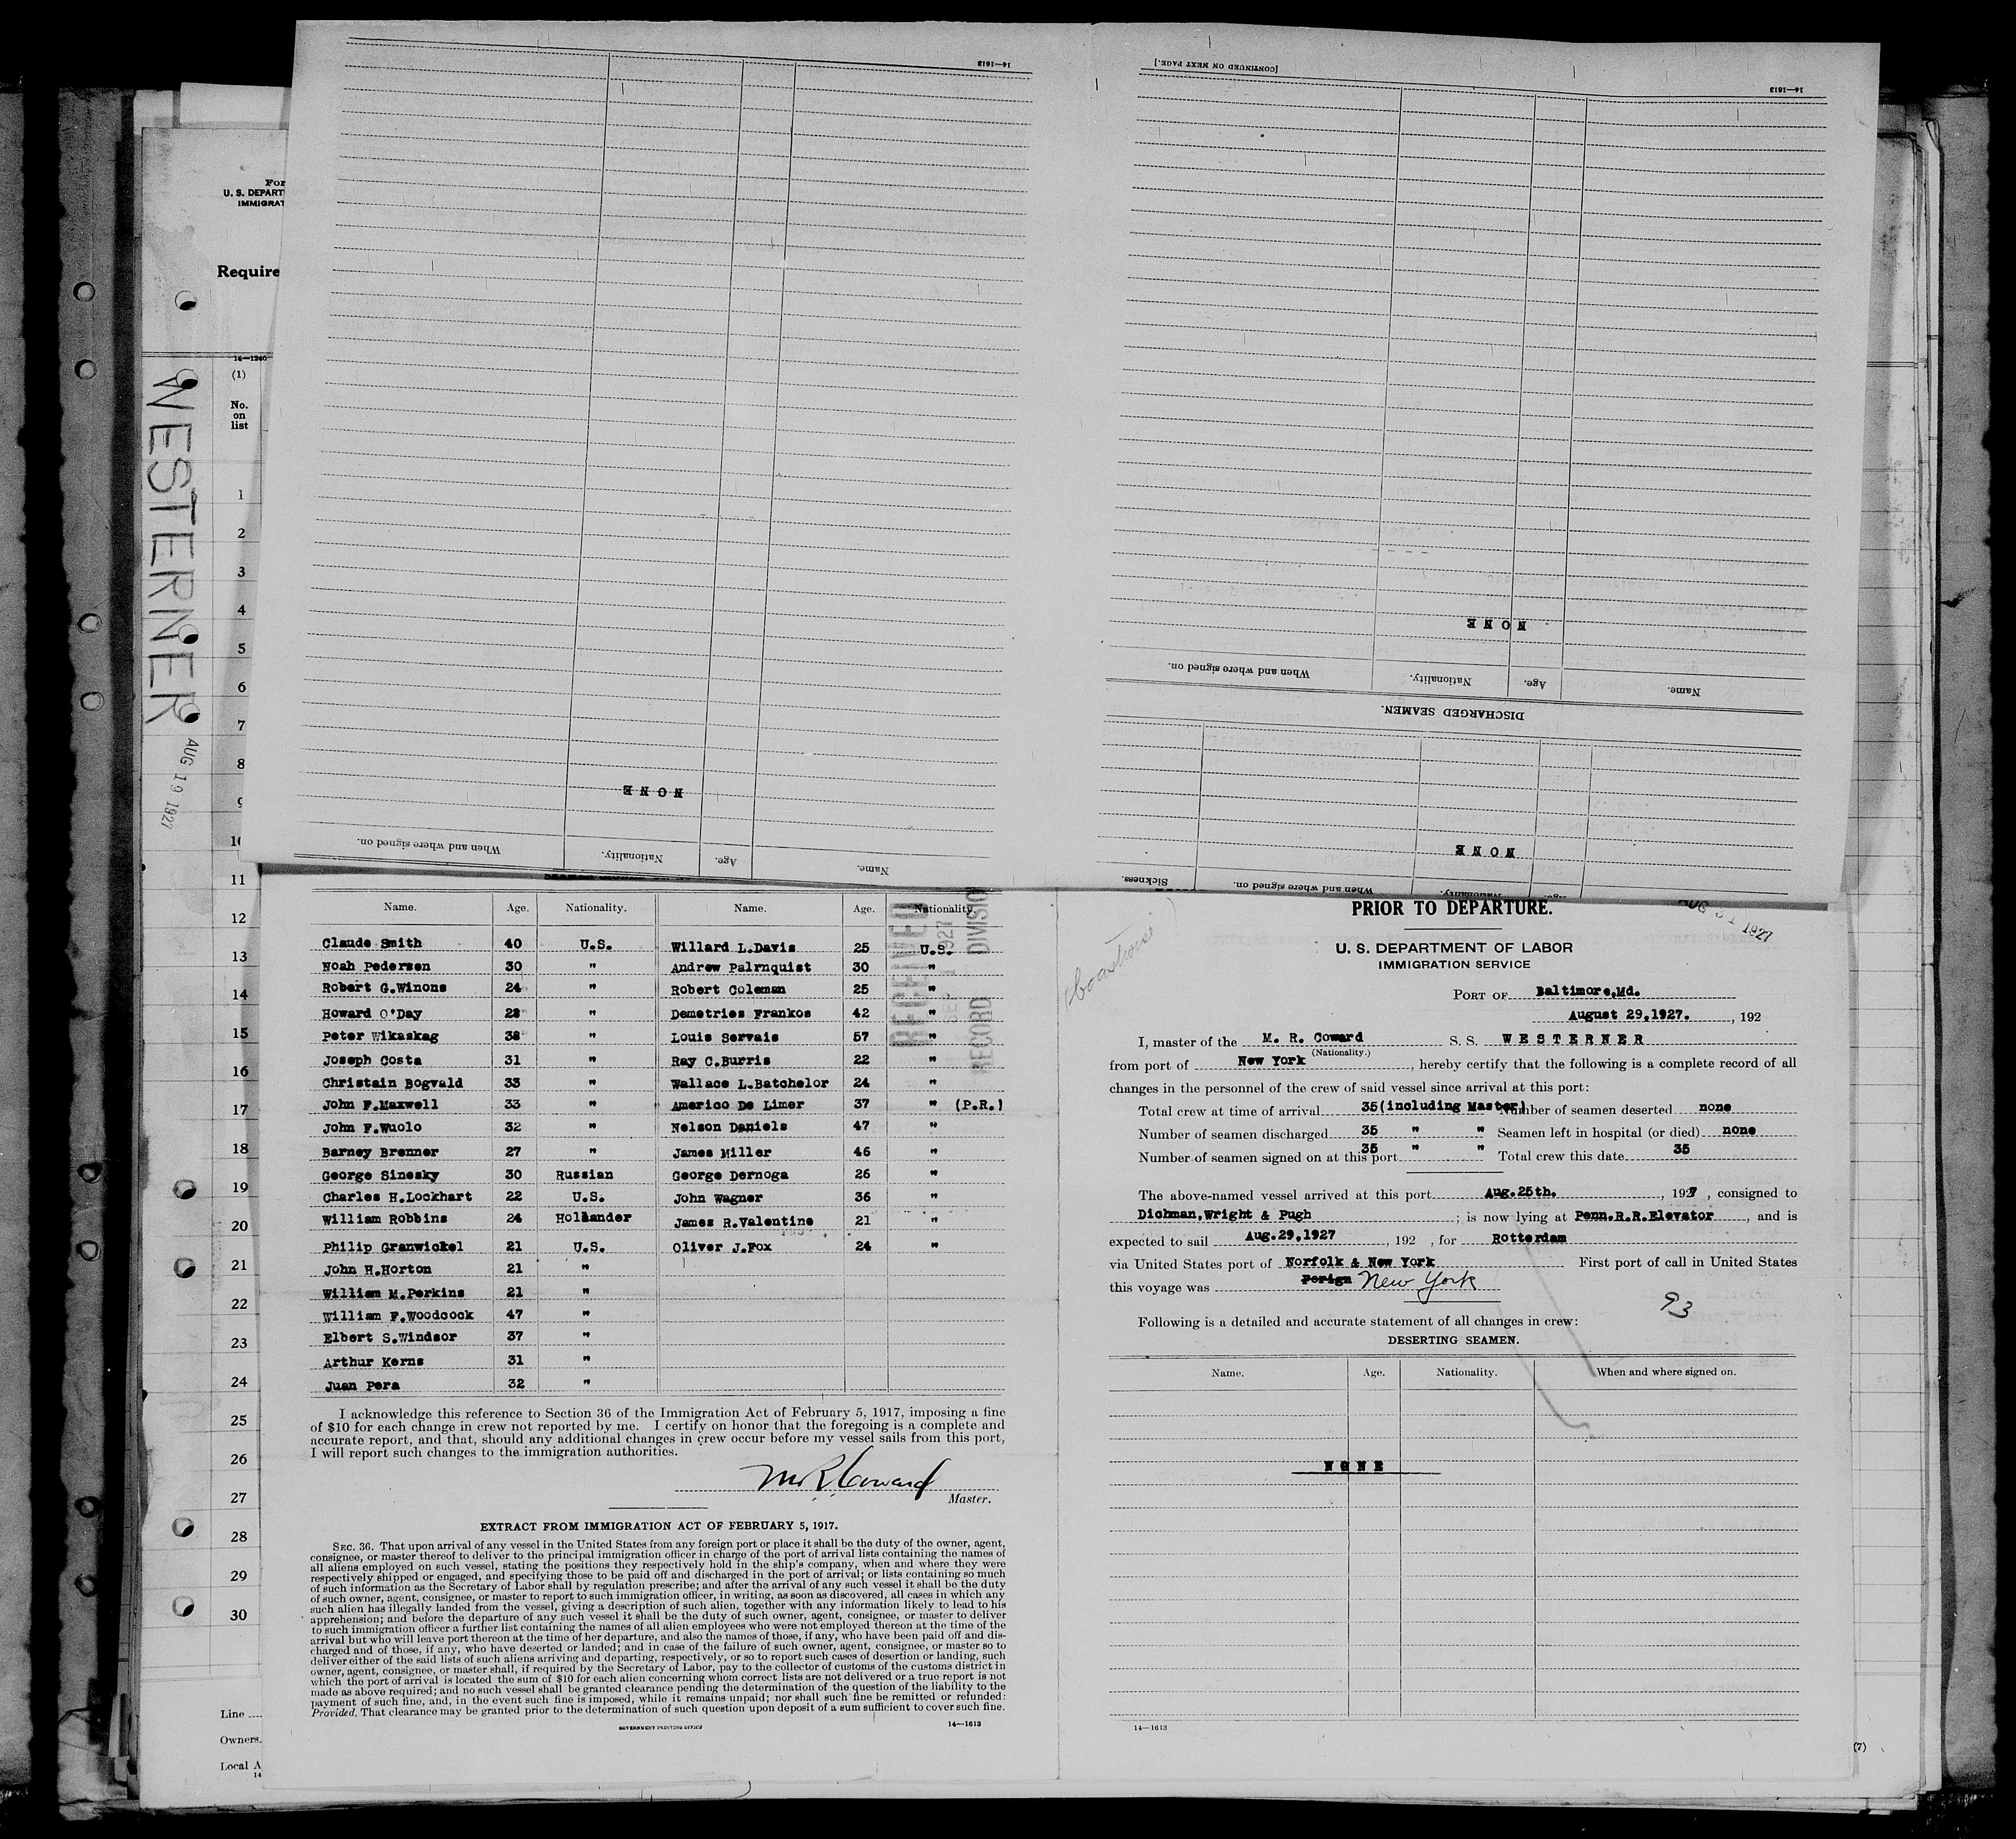 14—1613
[CONTINUED ON NEXT PAGE.]
14—1613
NONE
When and where signed on.
Nationality.
Age.
Name.
NONE
When and where signed on.
Nationality.
Age.
Name.
DISCHARGED SEAMEN.
NONE
Sickness.
When and where signed on.
Nationality.
Age.
For
U. S. DEPART
IMMIGRAT
Require
14—1240
(1)
No.
on
list
1
2
3
4
5
6
7
8
9
10
11
12
13
14
15
16
17
18
19
20
21
22
23
24
25
26
27
28
29
30
Line
Owners
Local A
14
WESTERNER
AUG 19 1927
Name. Age. Nationality. Name. Age. Nationality.
Claude Smith 40 U.S. Willard L.Davis 25 U.S.
Noah Pedersen 30 " Andrew Palrnquist 30 "
Robert G.Winons 24 " Robert Coleman 25 "
Howard O'Day 28 " Demetries Frankos 42 "
Peter Wikaskag 38 " Louis Servais 57 "
Joseph Costa 31 " Ray C.Burris 22 "
Christain Bogvald 33 " Wallace L.Batchelor 24 "
John F.Maxwell 33 " Americo De Limer 37 " (P.R.)
John F.Wuolo 32 " Nelson Daniels 47 "
Barney Brenner 27 " James Miller 46 "
George Sinesky 30 Russian George Dernoga 26 "
Charles H.Lockhart 22 U.S. John Wagner 36 "
William Robbins 24 Hollander James R.Valentine 21 "
Philip Granwickel 21 U.S. Oliver J.Fox 24 "
John H.Horton 21 "
William M.Perkins 21 "
William F.Woodcock 47 "
Elbert S.Windsor 37 "
Arthur Kerns 31 "
Juan Pera 32 "
RECEIVED
SEP 1 1927
RECORD DIVISION
I acknowledge this reference to Section 36 of the Immigration Act of February 5, 1917, imposing a fine
of $10 for each change in crew not reported by me. I certify on honor that the foregoing is a complete and
accurate report, and that, should any additional changes in crew occur before my vessel sails from this port,
I will report such changes to the immigration authorities.
M R Coward
Master.
EXTRACT FROM IMMIGRATION ACT OF FEBRUARY 5, 1917.
SEC. 36. That upon arrival of any vessel in the United States from any foreign port or place it shall be the duty of the owner, agent,
consignee, or master thereof to deliver to the principal immigration officer in charge of the port of arrival lists containing the names of
all aliens employed on such vessel, stating the positions they respectively hold in the ship's company, when and where they were
respectively shipped or engaged, and specifying those to be paid off and discharged in the port of arrival; or lists containing so much
of such information as the Secretary of Labor shall by regulation prescribe; and after the arrival of any such vessel it shall be the duty
of such owner, agent, consignee, or master to report to such immigration officer, in writing, as soon as discovered, all cases in which any
such alien has illegally landed from the vessel, giving a description of such alien, together with any information likely to lead to his
apprehension; and before the departure of any such vessel it shall be the duty of such owner, agent, consignee, or master to deliver
to such immigration officer a further list containing the names of all alien employees who were not employed thereon at the time of the
arrival but who will leave port thereon at the time of her departure, and also the names of those, if any, who have been paid off and dis-
charged and of those, if any, who have deserted or landed; and in case of the failure of such owner, agent, consignee, or master so to
deliver either of the said lists of such aliens arriving and departing, respectively, or so to report such cases of desertion or landing, such
owner, agent, consignee, or master shall, if required by the Secretary of Labor, pay to the collector of customs of the customs district in
which the port of arrival is located the sum of $10 for each alien concerning whom correct lists are not delivered or a true report is not
made as above required; and no such vessel shall be granted clearance pending the determination of the question of the liability to the
payment of such fine, and, in the event such fine is imposed, while it remains unpaid; nor shall such fine be remitted or refunded:
Provided, That clearance may be granted prior to the determination of such question upon deposit of a sum sufficient to cover such fine.
GOVERNMENT PRINTING OFFICE
14—1613
PRIOR TO DEPARTURE.
AUG 31 1927
U. S. DEPARTMENT OF LABOR
IMMIGRATION SERVICE
(coastwise)
PORT OF Baltimore,Md.
August 29,1927. , 192
I, master of the M. R. Coward S. S. WESTERNER
(Nationality.)
from port of New York , hereby certify that the following is a complete record of all
changes in the personnel of the crew of said vessel since arrival at this port:
Total crew at time of arrival 35(including Master) Number of seamen deserted none
Number of seamen discharged 35 " " Seamen left in hospital (or died) none
Number of seamen signed on at this port 35 " " Total crew this date 35
The above-named vessel arrived at this port Aug.25th. , 1927 , consigned to
Dichman,Wright & Pugh ; is now lying at Penn.R.R.Elevator , and is
expected to sail Aug.29,1927 , 192 , for Rotterdam
via United States port of Norfolk & New York First port of call in United States
this voyage was Forign New York
93
Following is a detailed and accurate statement of all changes in crew:
DESERTING SEAMEN.
Name. Age. Nationality. When and where signed on.
NONE
14—1613
(7)